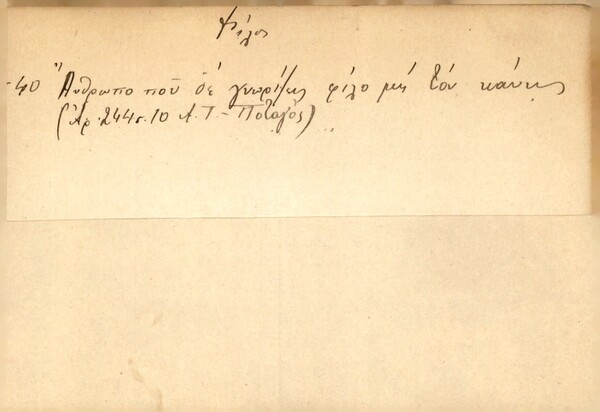 Φίλος
40 Ἄνθρωπο ποῦ δὲ γνωρίζεις φίλο μὴ τὸν κάνης
(Ἀρ. 244 σ. 10 Λ. Τ. – Ποταγός)